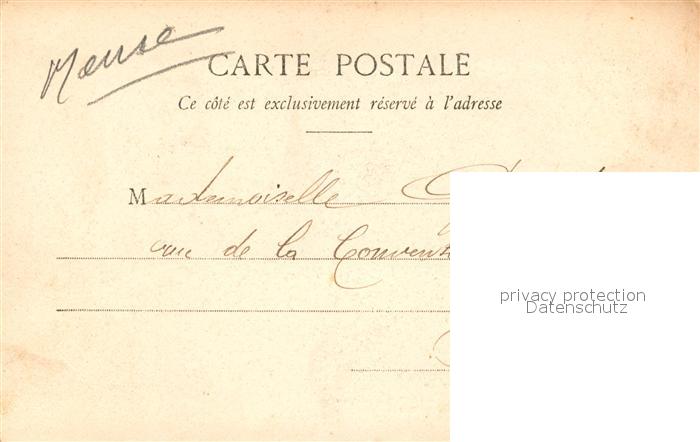 Meuse
CARTE POSTALE
Ce côté est exclusivement réservé à l'adresse
Mademoiselle
rue de la
privacy protection
Datenschutz